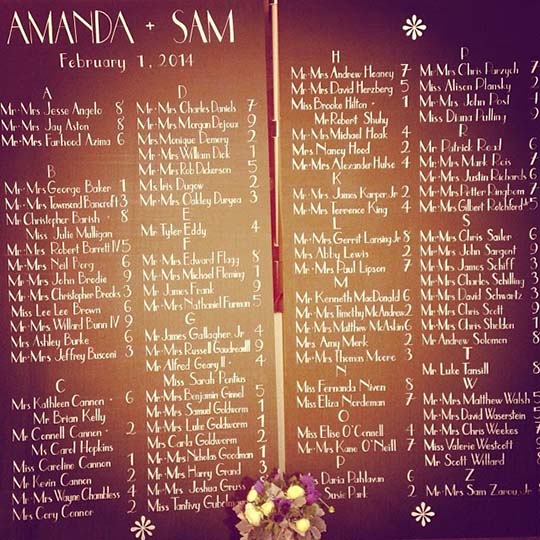 AMANDA + SAM
February 1, 2014
A
Mr · Mrs Jesse Angelo 8
Mr · Mrs Jay Aston 8
Mr · Mrs Farhood Azima 6
B
Mr · Mrs George Baker 1
Mr · Mrs Townsend Bancroft 3
Mr Christopher Barish · 8
Miss Julie Mulligan
Mr · Mrs Robert Barrett IV 5
Mr · Mrs Neil Borg 6
Mr · Mrs John Brodie 9
Mr · Mrs Christopher Brooks 3
Miss Lee Lee Brown 6
Mr · Mrs Willard Bunn IV 9
Mrs Ashley Burke 6
Mr · Mrs Jeffrey Busconi 3
C
Mrs Kathleen Cannon · 6
Mr Brian Kelly
Mr Connell Cannon · 4
Ms Carol Hopkins
Miss Caroline Cannon 1
Mr Kevin Cannon 2
Mr · Mrs Wayne Chambless 4
Mrs Cory Connor 2
D
Mr · Mrs Charles Daniels 7
Mr · Mrs Morgan Dejoux 9
Mrs Monique Demery 2
Mr · Mrs William Dick 1
Mr · Mrs Rob Dickerson 5
Ms Iris Dugow 2
Mr · Mrs Oakley Duryea 3
E
Mr Tyler Eddy 4
F
Mr · Mrs Edward Flagg 8
Mr · Mrs Michael Fleming 1
Mr James Frank 9
Mr · Mrs Nathaniel Furman 5
G
Mr James Gallagher, Jr 4
Mr · Mrs Russell Gaudreau III 9
Mr Alfred Geary II · 4
Miss Sarah Pontius
Mr · Mrs Benjamin Ginnel 5
Mr · Mrs Samuel Goldworm 1
Mr · Mrs Luke Goldworm 1
Mrs Carla Goldworm 2
Mr · Mrs Nicholas Goodman 1
Mr · Mrs Harry Grand 3
Mr · Mrs Joshua Gruss
Miss Tantivy
H
Mr · Mrs Andrew Heaney 7
Mr · Mrs David Herzberg 5
Miss Brooke Hilton · 1
Mr Robert Shuhy
Mr · Mrs Michael Hoak 4
Mrs Nancy Hood 2
Mr · Mrs Alexander Hulse 4
K
Mr · Mrs James Karper, Jr 2
Mr · Mrs Terrence King 4
L
Mr · Mrs Gerrit Lansing, Jr 8
Ms Abby Lewis 2
Mr · Mrs Paul Lipson 7
M
Mr Kenneth MacDonald 6
Mr · Mrs Timothy McAndrew 2
Mr · Mrs Matthew McAslan 6
Mrs Amy Merk 2
Mr · Mrs Thomas Moore 3
N
Miss Fernanda Niven 8
Miss Eliza Nordeman 7
O
Miss Elise O'Connell 4
Mr · Mrs Kane O'Neill 7
P
Daria Pahlavan 6
Susie Park 2
P
Mr · Mrs Chris Parzych 7
Miss Alison Plansky 2
Mr · Mrs John Post 4
Miss Diana Pulling 9
R
Mr Patrick Real 6
Mr · Mrs Mark Rois 7
Mr · Mrs Justin Richards 6
Mr · Mrs Petter Ringbom 7
Mr · Mrs Gilbert 5
S
Mr · Mrs Chris Sailer 6
Mr · Mrs John Sargent 9
Mr · Mrs James Schiff 3
Mr · Mrs Charles Schilling 3
Mr · Mrs David Schwartz 3
Mr · Mrs Chris Scott 9
Mr · Mrs Chris Sheldon 1
Mr Andrew Solomon 8
T
Mr Luke Tansill 8
W
Mr · Mrs Matthew Walsh 5
Mr · Mrs David Waserstein 5
Mr · Mrs Chris Weekes 7
Miss Valerie Westcott 9
Mr Scott Willard 8
Z
Mr · Mrs Sam Zarou, Jr 8